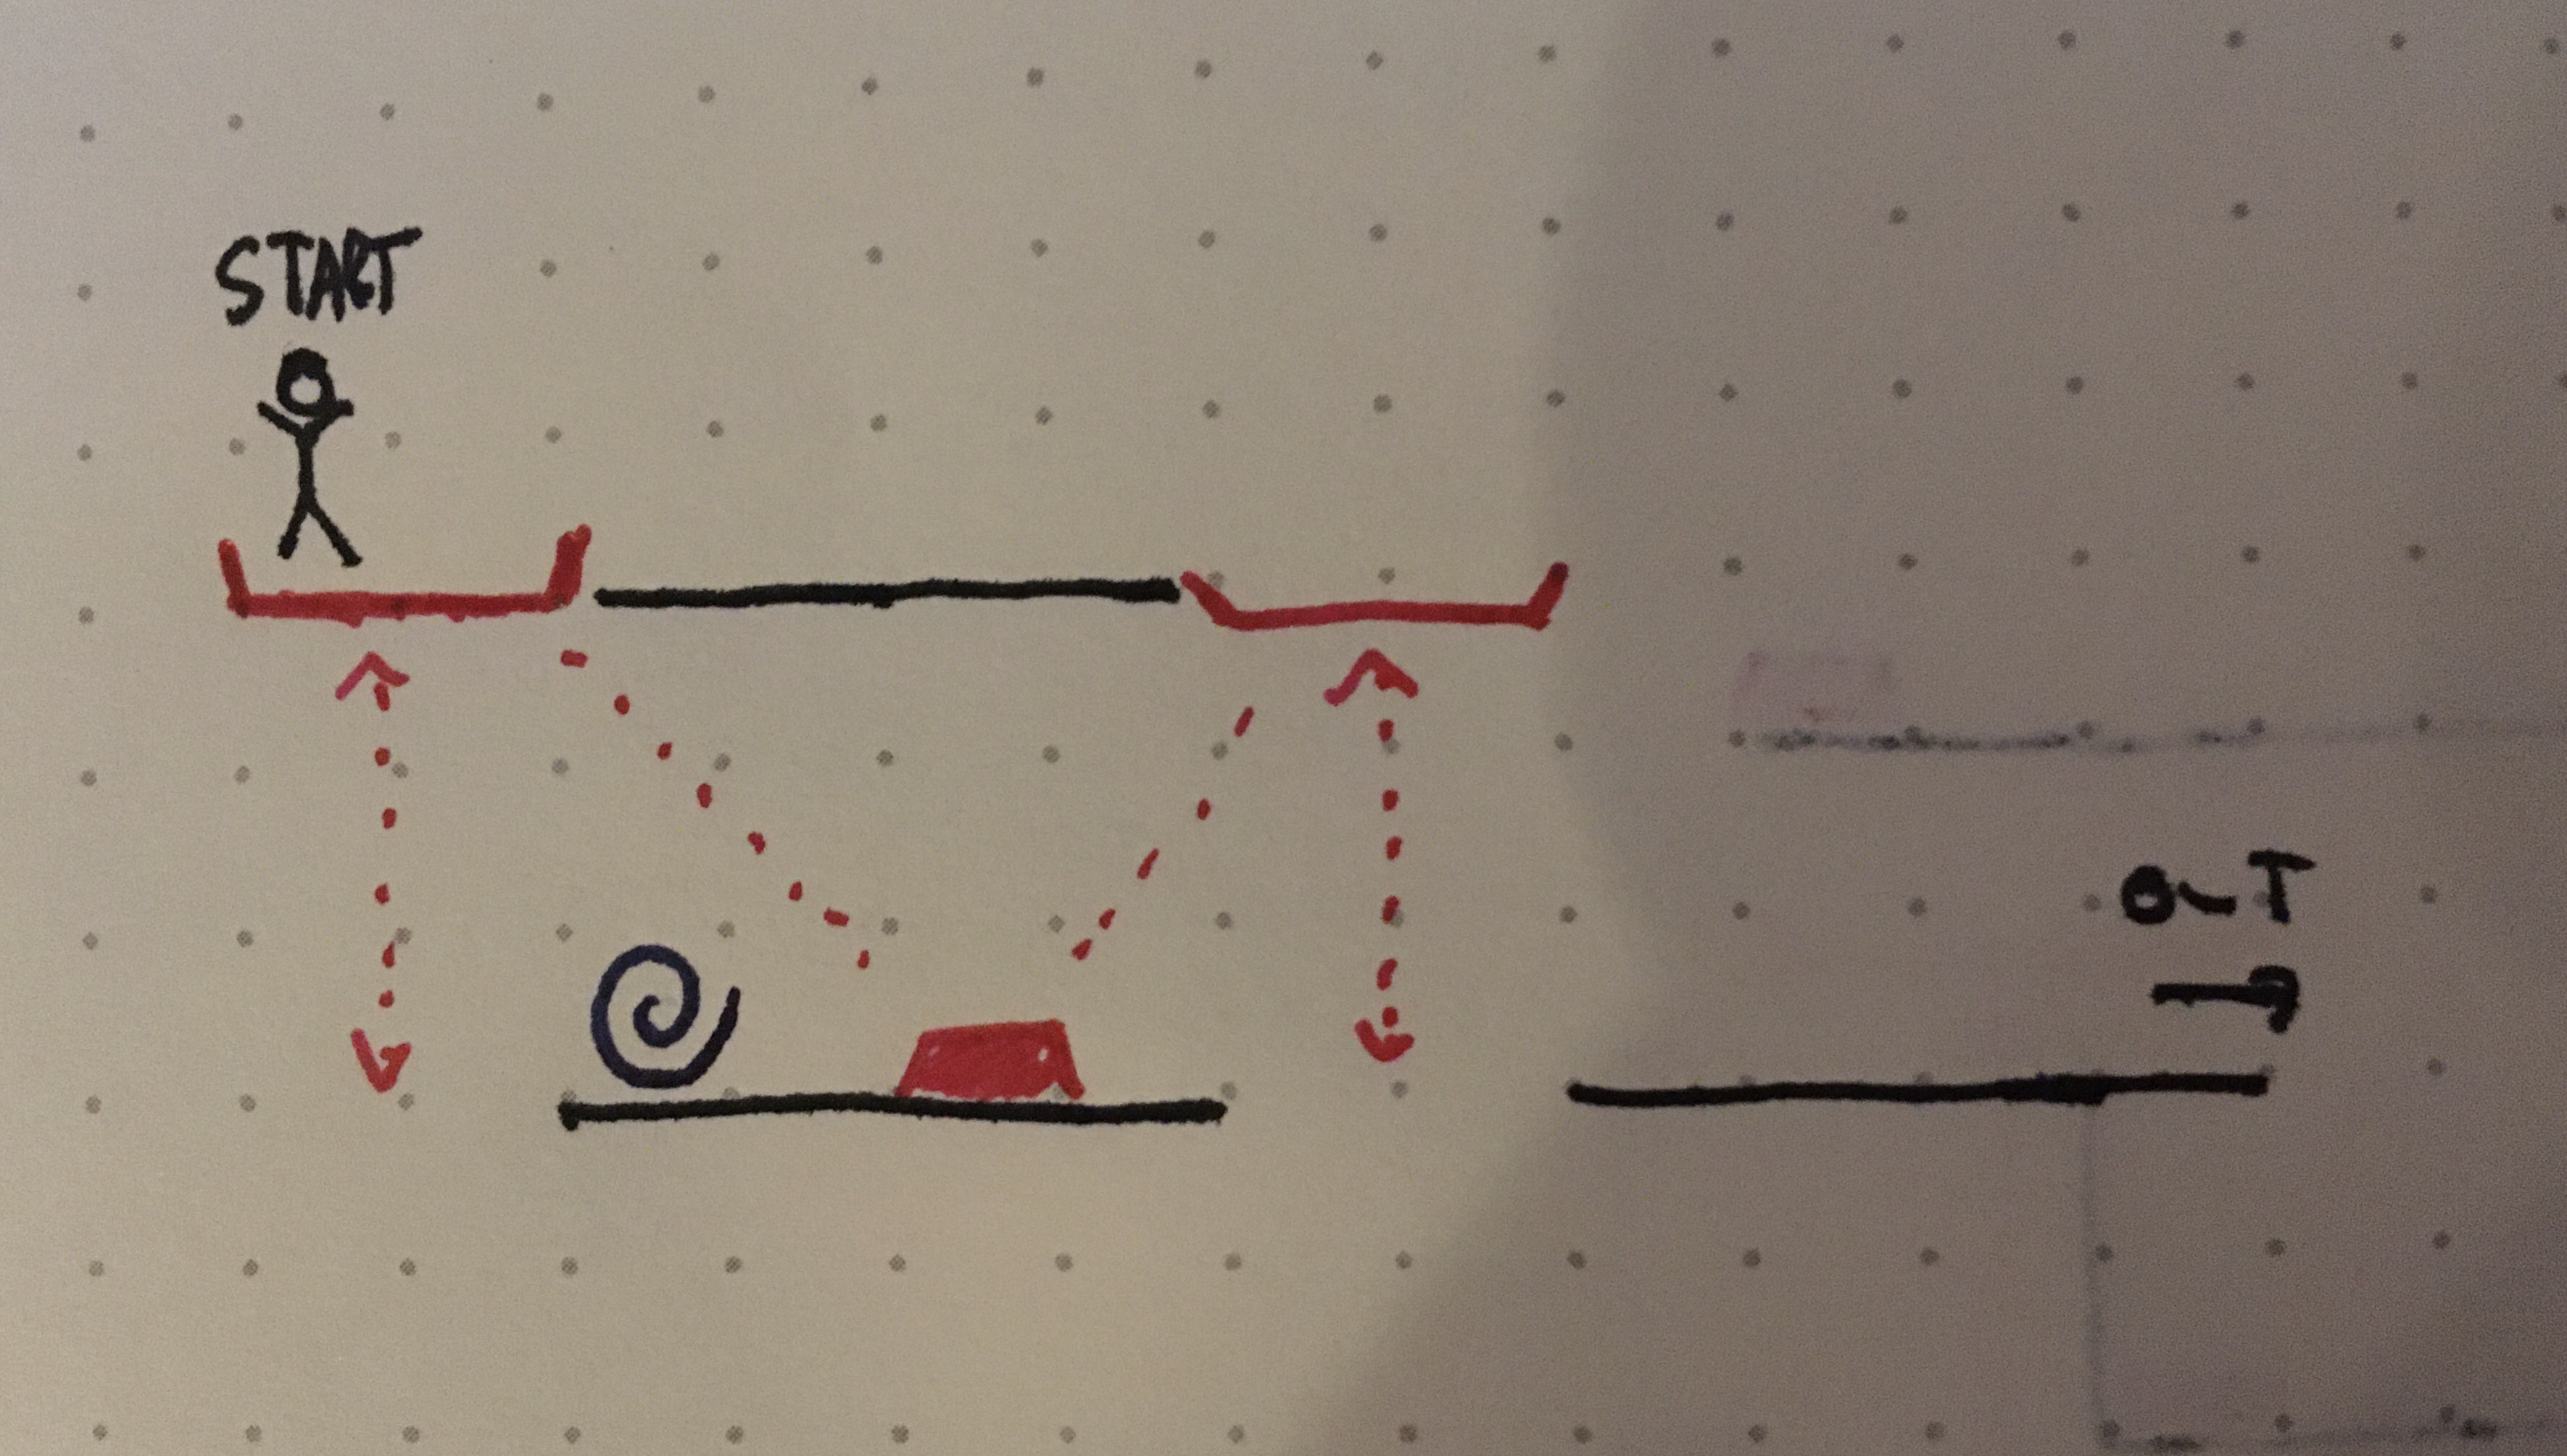 START
OUT